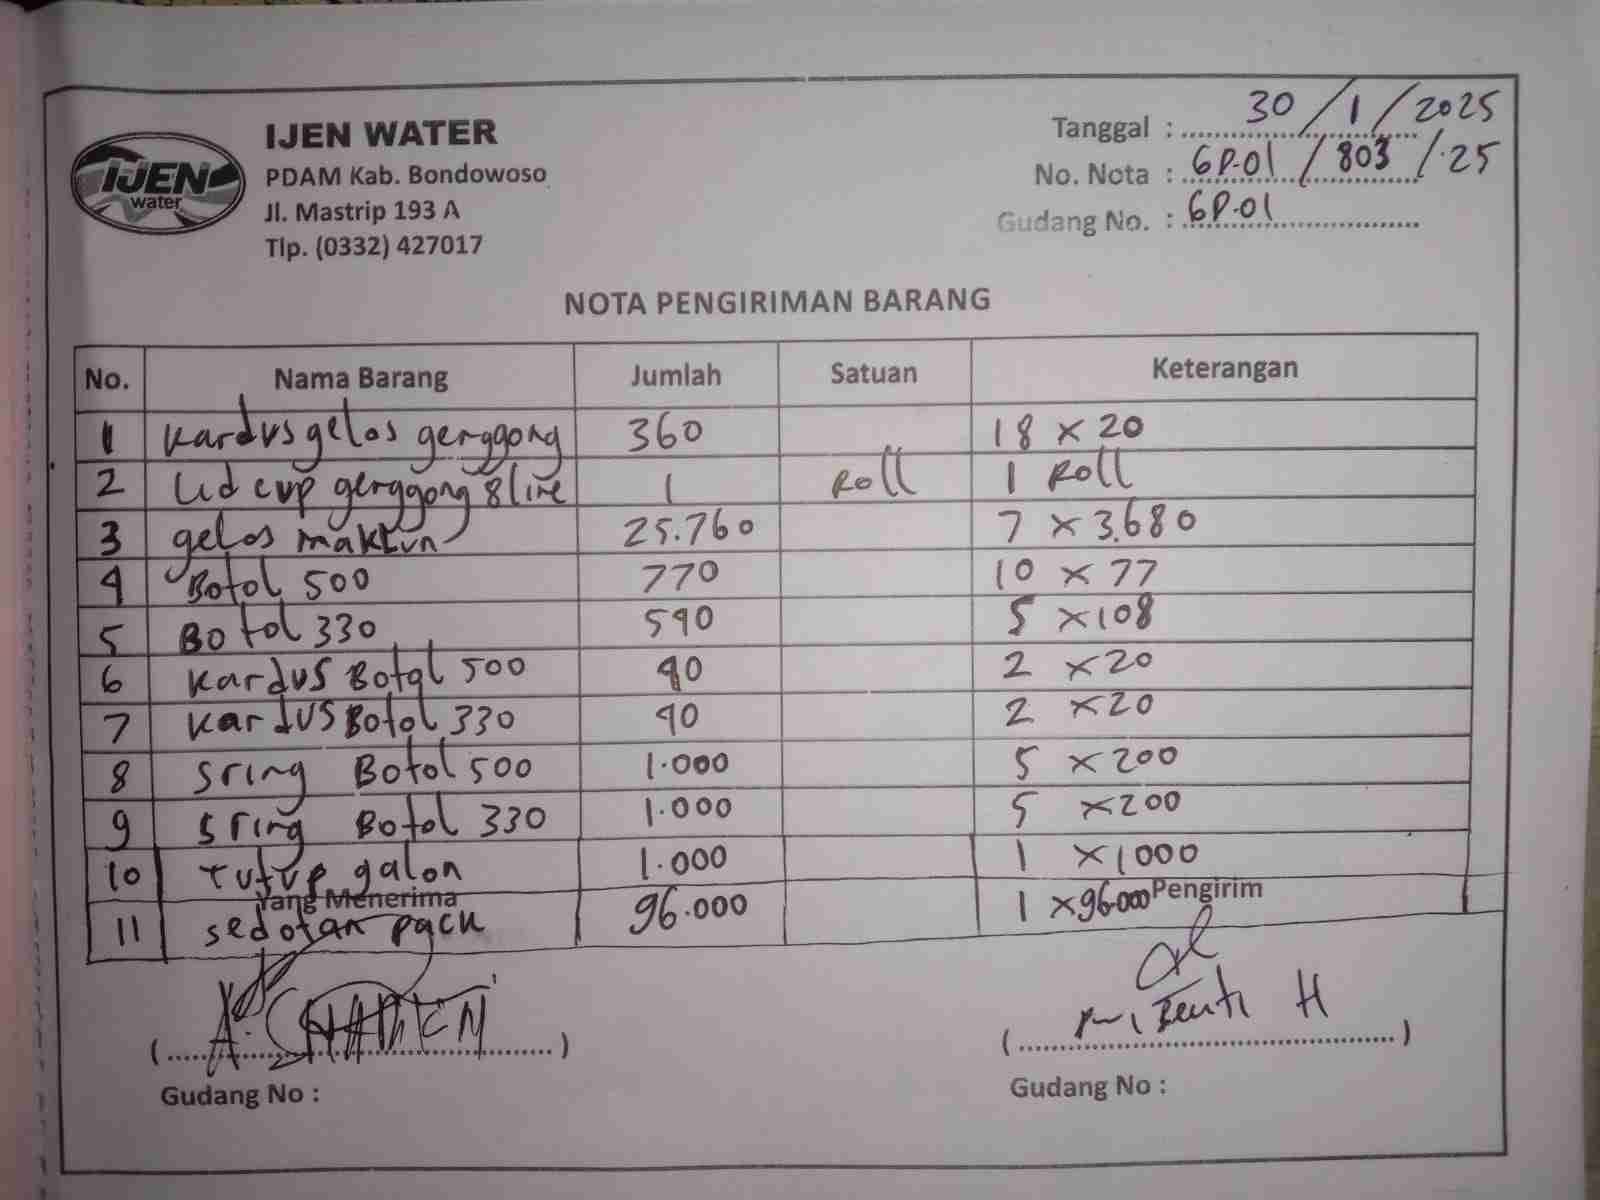 IJEN water
IJEN WATER
PDAM Kab. Bondowoso
Jl. Mastrip 193 A
Tlp. (0332) 427017
Tanggal : 30 / 1 / 2025
No. Nota : GP.01 / 803 / 25
Gudang No. : GP.01
NOTA PENGIRIMAN BARANG
No. Nama Barang Jumlah Satuan Keterangan
1 Kardus gelas genggong 360 18 x 20
2 Lid cup genggong 8 line 1 Roll 1 Roll
3 gelas maktun 25.760 7 x 3.680
4 Botol 500 770 10 x 77
5 Botol 330 540 5 x 108
6 Kardus Botol 500 40 2 x 20
7 Kardus Botol 330 40 2 x 20
8 Sring Botol 500 1.000 5 x 200
9 Sring Botol 330 1.000 5 x 200
10 Tutup galon 1.000 1 x 1000
Yang Menerima Pengirim
11 sedotan pack 96.000 1 x 96.000
(....................) (....................)
Gudang No : Gudang No :